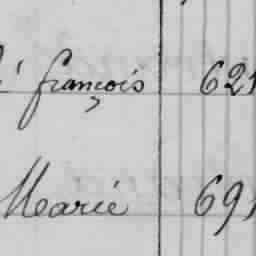 françois 621
Marie 691